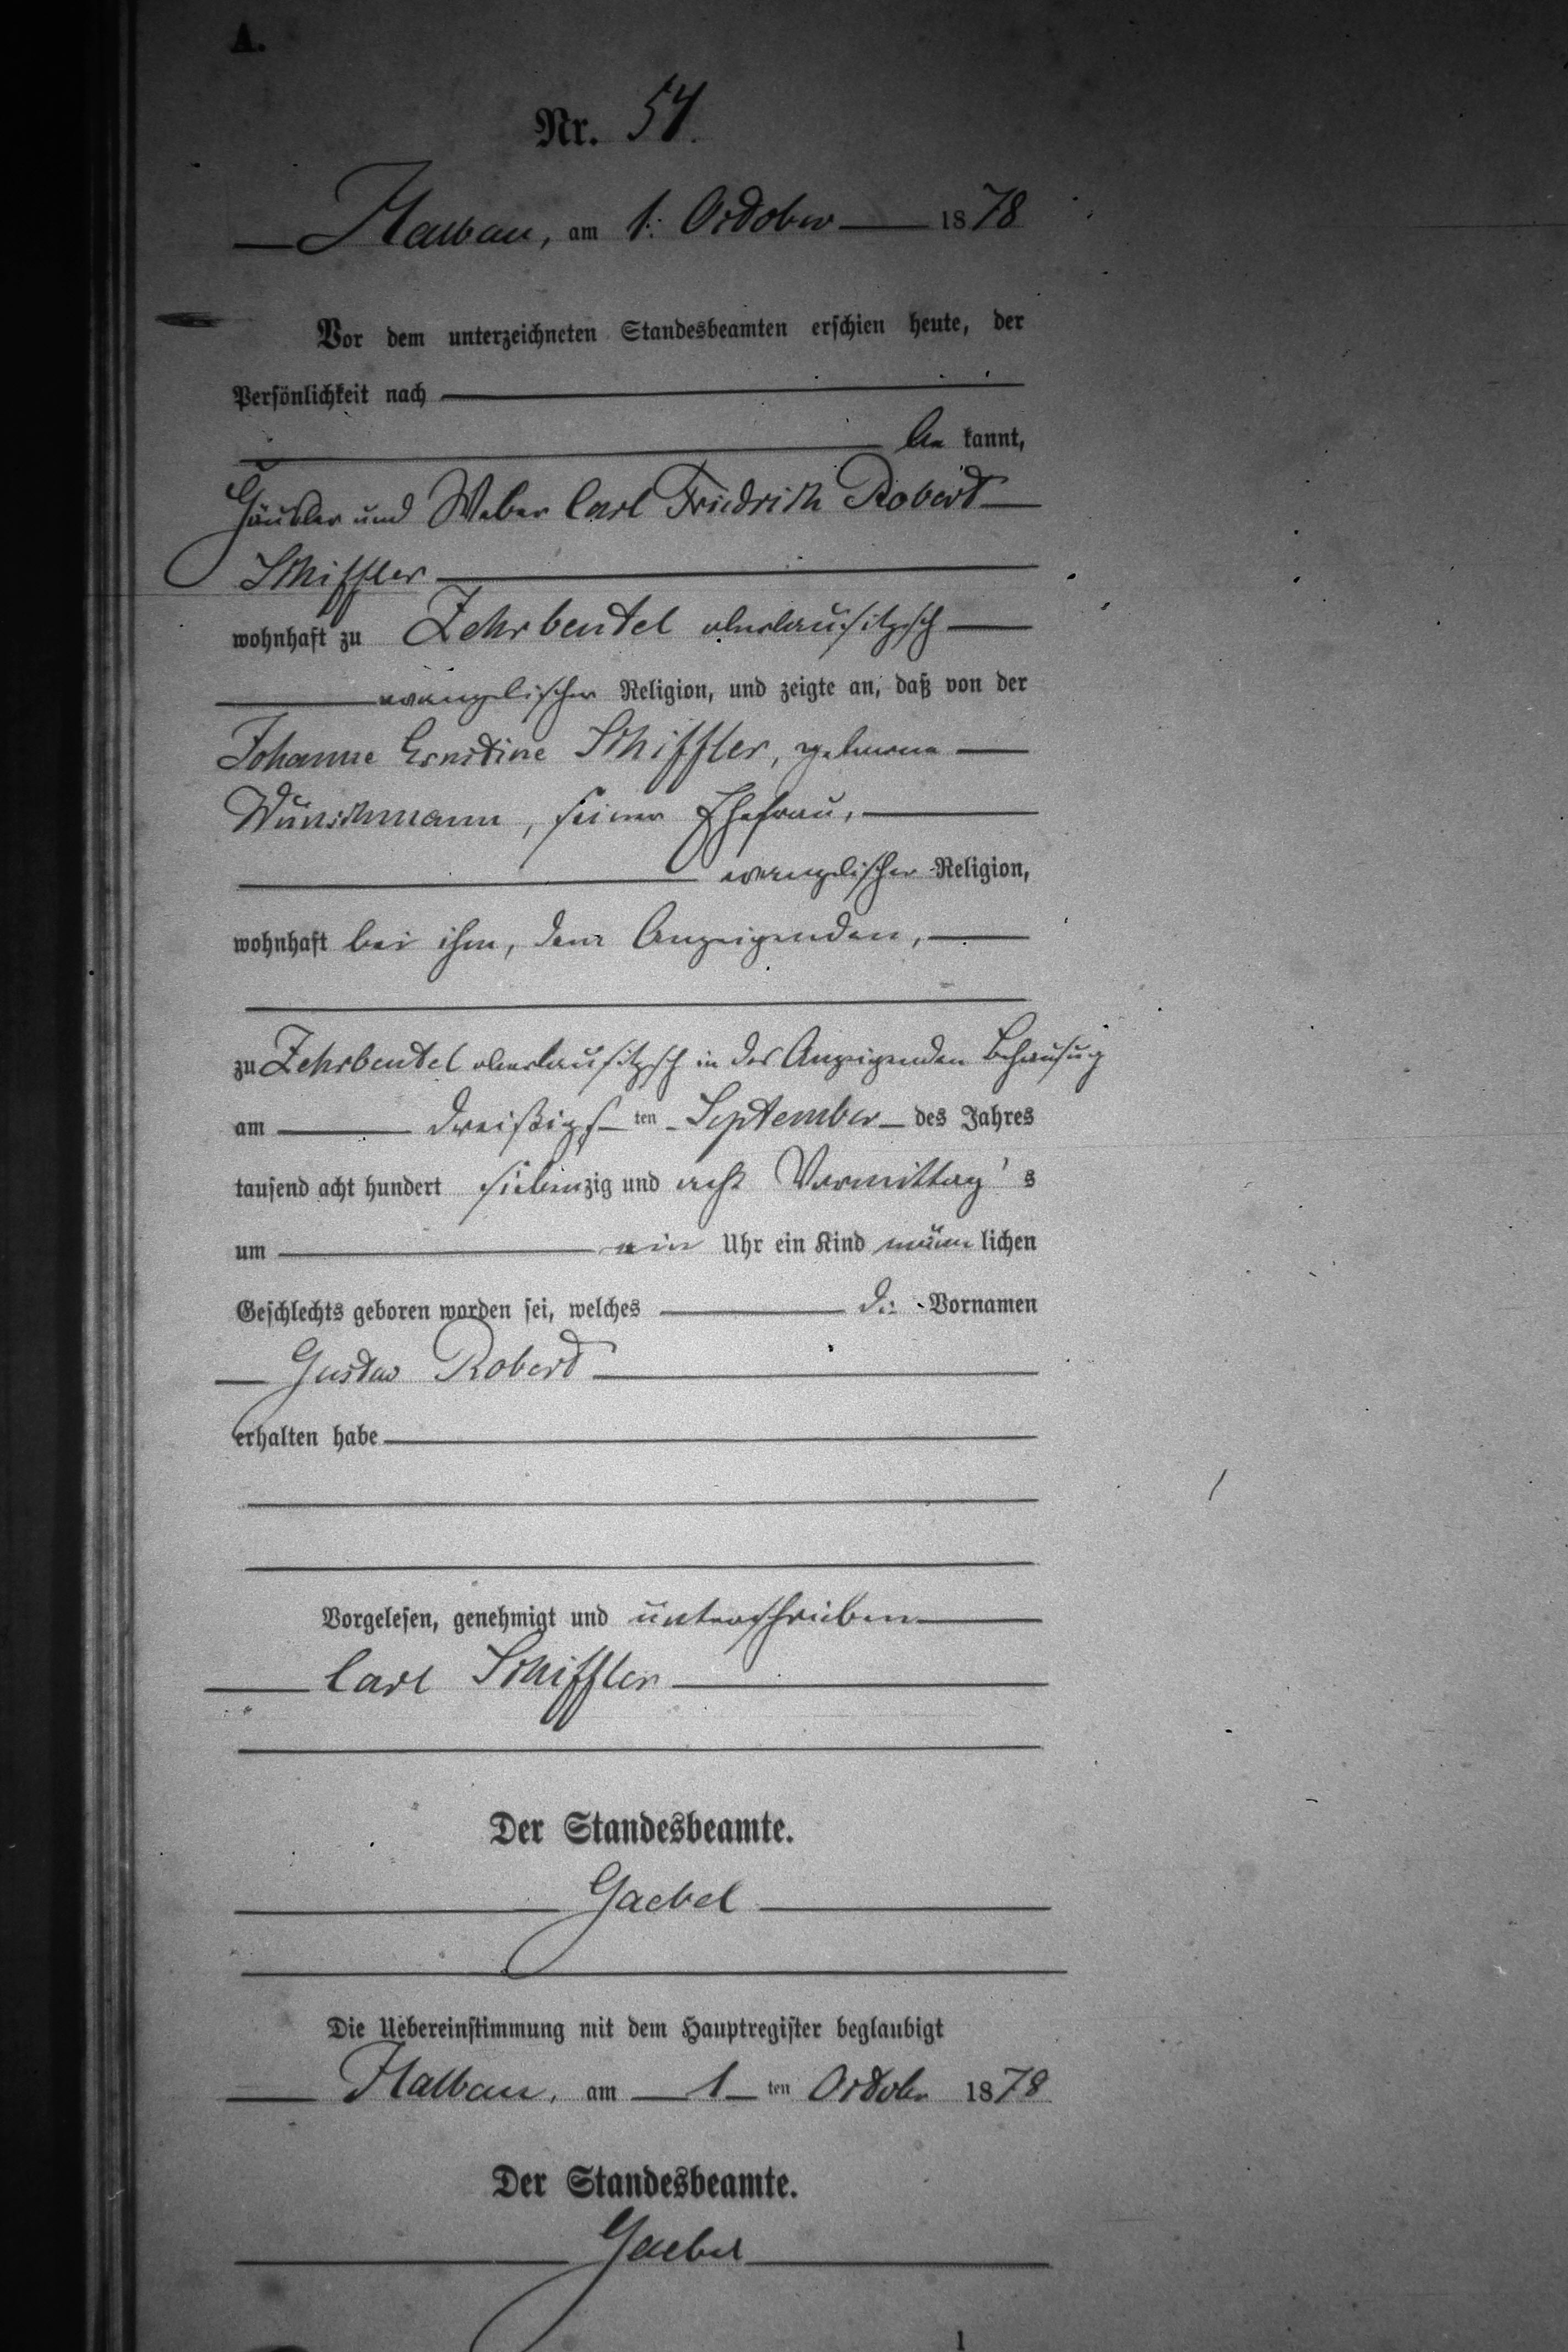 A.
Nr. 54.
Halbau, am 1. October 1878
Vor dem unterzeichneten Standesbeamten erschien heute, der
Persönlichkeit nach
be kannt,
Häusler und Weber Carl Friedrich Robert
Schiffter
wohnhaft zu Zehrbeutel oberlausitzsch
evangelischer Religion, und zeigte an, daß von der
Johanne Ernestine Schiffter, geborene
Wünschmann, seiner Ehefrau,
evangelischer Religion,
wohnhaft bei ihm, dem Anzeigenden,
zu Zehrbeutel oberlausitzsch in des Anzeigenden Behausung
am dreißigsten September des Jahres
tausend acht hundert siebenzig und acht Vormittag's
um ein Uhr ein Kind männlichen
Geschlechts geboren worden sei, welches die Vornamen
Gustav Robert
erhalten habe
Vorgelesen, genehmigt und unterschrieben
Carl Schiffter
Der Standesbeamte.
Gaebel
Die Uebereinstimmung mit dem Hauptregister beglaubigt
Halbau, am 1ten October 1878
Der Standesbeamte.
Gaebel
1